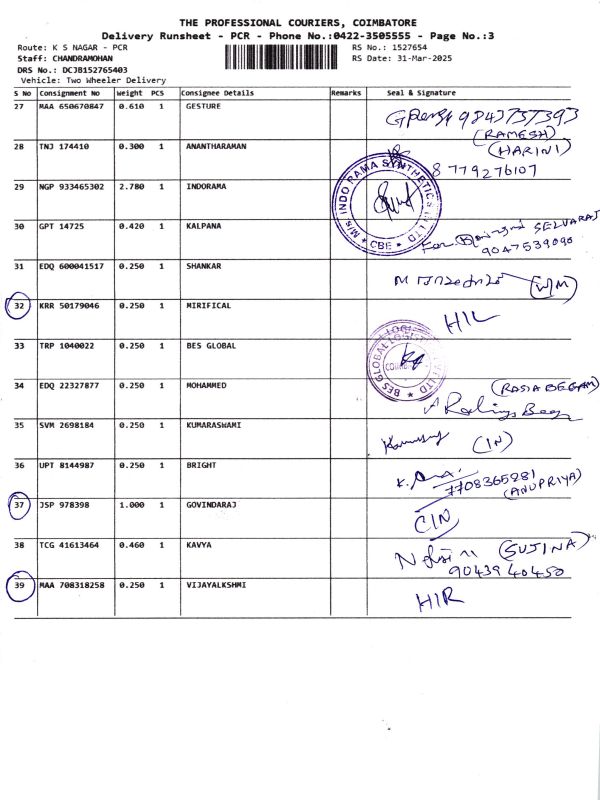 THE PROFESSIONAL COURIERS, COIMBATORE
Delivery Runsheet - PCR - Phone No.:0422-3505555 - Page No.:3
Route: K S NAGAR - PCR RS No.: 1527654
Staff: CHANDRAMOHAN RS Date: 31-Mar-2025
DRS No.: DCJB152765403
Vehicle: Two Wheeler Delivery
S No Consignment No Weight PCS Consignee Details Remarks Seal & Signature
27 MAA 650670847 0.610 1 GESTURE
(RAMESH)
28 TNJ 174410 0.300 1 ANANTHARAMAN (HARINI)
8779276107
29 NGP 933465302 2.780 1 INDORAMA M/s INDO RAMA SYNTHETICS (I) LTD * CBE *
30 GPT 14725 0.420 1 KALPANA For SELVARAJ
9047539090
31 EDQ 600041517 0.250 1 SHANKAR (W/M)
32 KRR 50179046 0.250 1 MIRIFICAL HIL
33 TRP 1040022 0.250 1 BES GLOBAL BES GLOBAL LOGISTICS PVT LTD
34 EDQ 22327877 0.250 1 MOHAMMED (RASIA BEGAM)
35 SVM 2698184 0.250 1 KUMARASWAMI (IN)
36 UPT 8144987 0.250 1 BRIGHT 7708365281
(ANUPRIYA)
37 JSP 978398 1.000 1 GOVINDARAJ CIN
38 TCG 41613464 0.460 1 KAVYA (SUJINA)
9043940450
39 MAA 708318258 0.250 1 VIJAYALKSHMI HIR